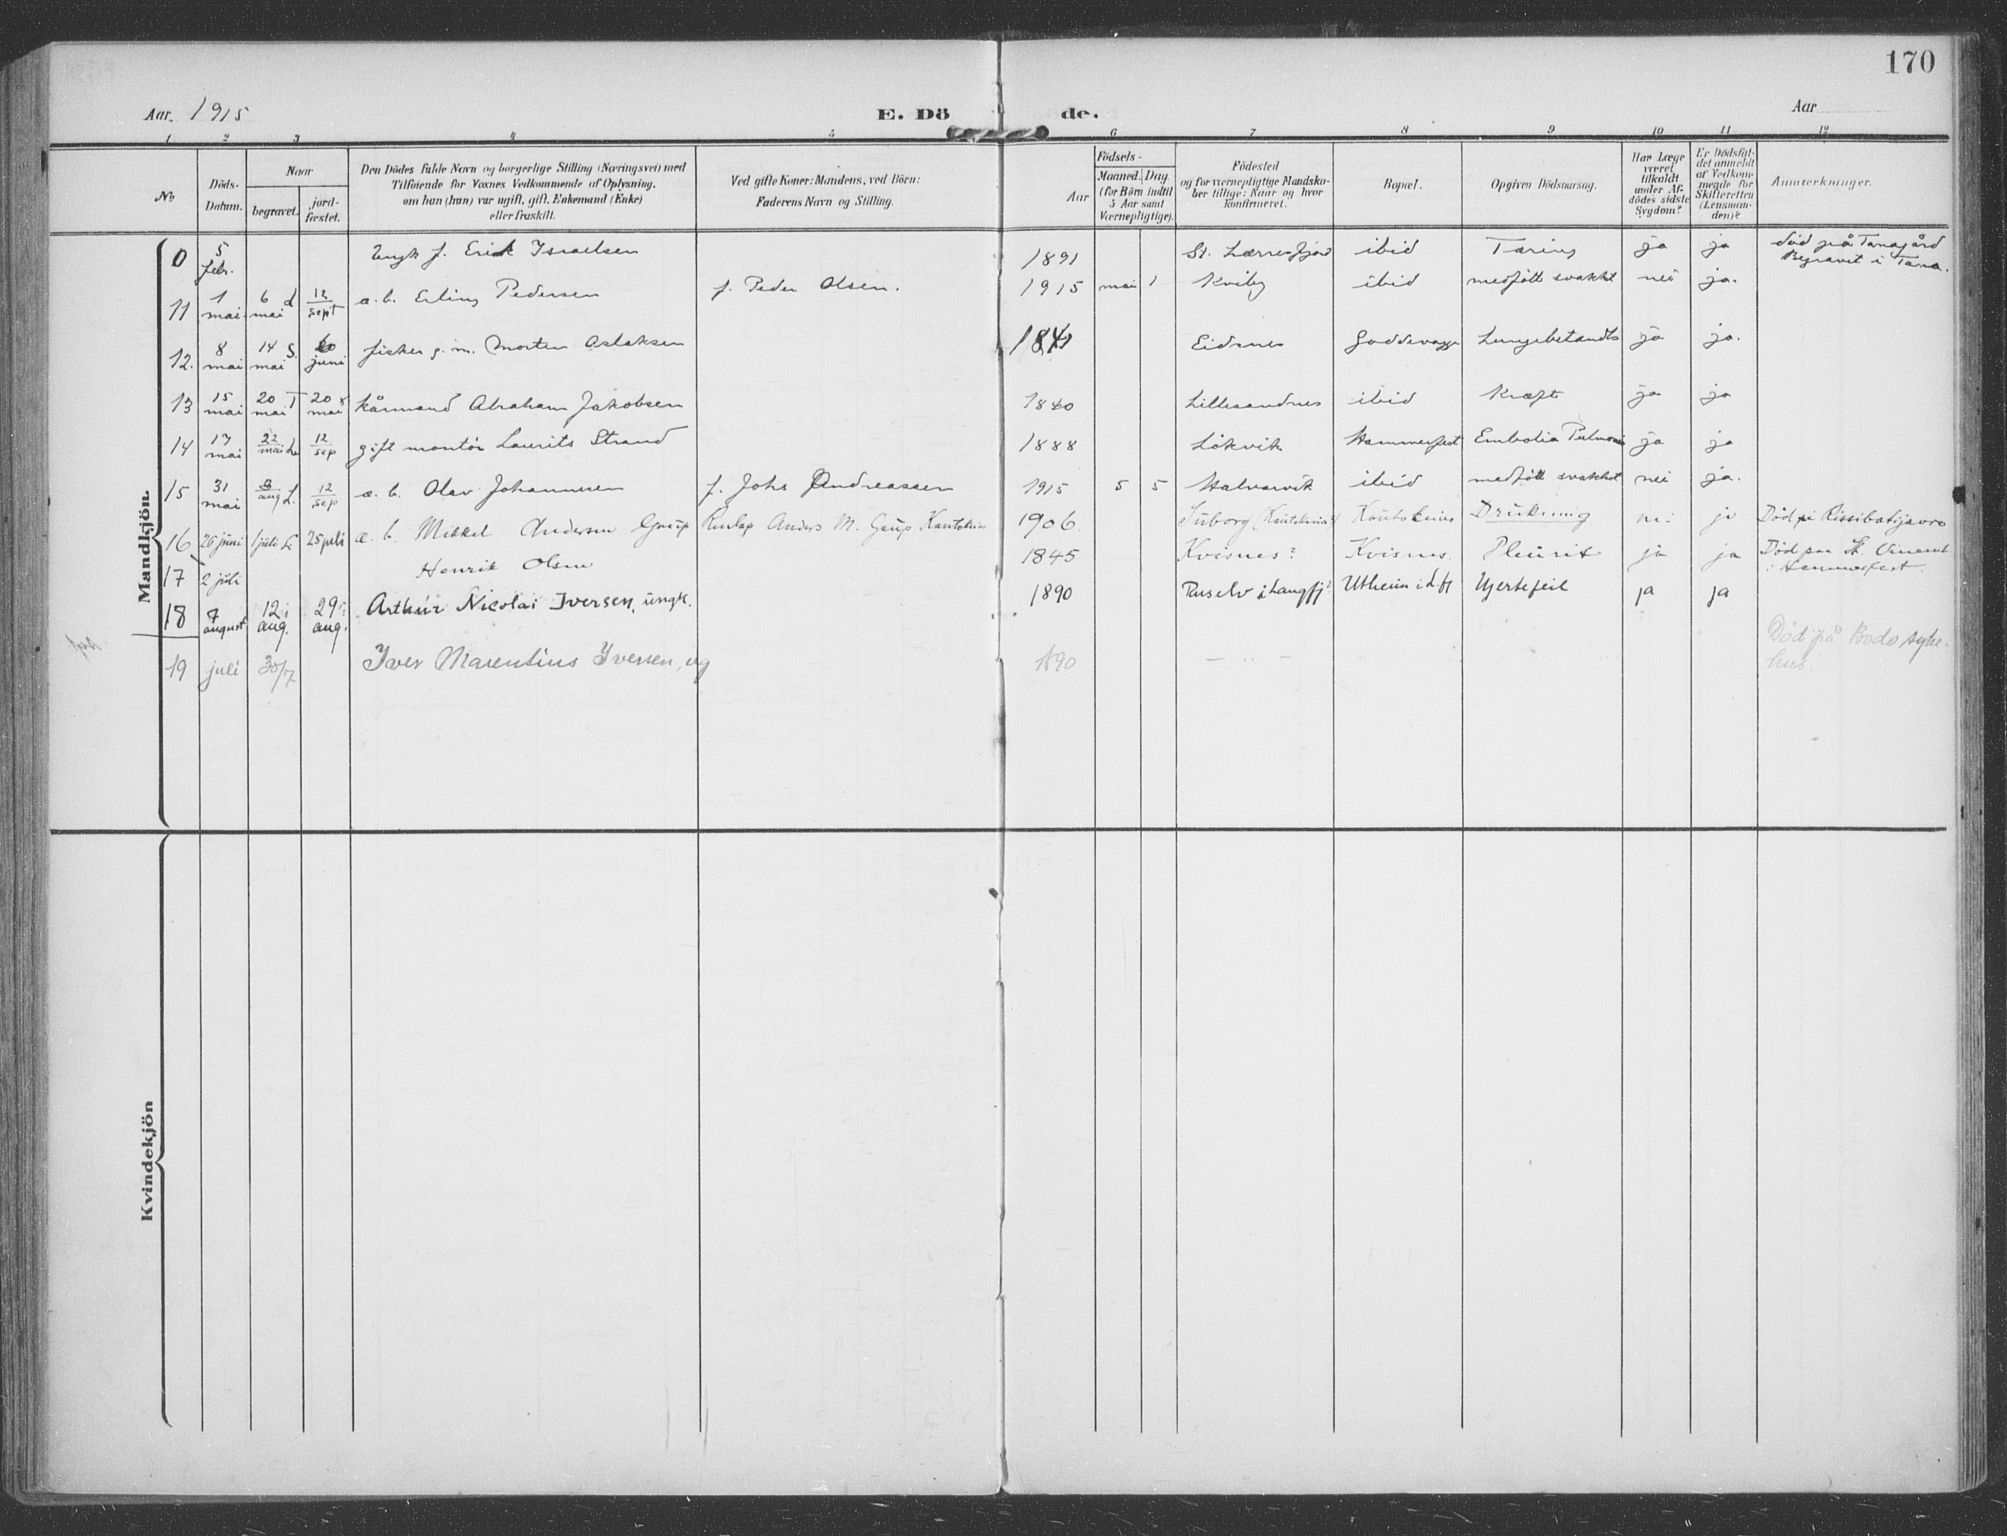 170
Aar. 1915
E. Dö de.
Aar
1 2 3 4 5 6 7 8 9 10 11 12
No.
Döds-Datum.
Naar
begravet.
jord-fæstet.
Den Dödes fulde Navn og borgerlige Stilling (Næringsvei) med
Tilföiende for Voxnes Vedkommende af Oplysning,
om han (hun) var ugift, gift, Enkemand (Enke)
eller fraskilt.
Ved gifte Koner: Mandens, ved Börn:
Faderens Navn og Stilling.
Födsels-
Aar
Maaned. Dag.
(for Börn indtil
5 Aar samt
Værnepligtige).
Födested
og for værnepligtige Mandska-
ber tillige: Naar og hvor
konfirmeret.
Bopæl.
Opgiven Dödsaarsag.
Har Læge
været
tilkaldt
under Af-
dödes sidste
Sygdom?
Er Dödsfal-
det anmeldt
af Vedkom-
mende for
Skifteretten
(Lensman-
den)?
Anmærkninger.
Mandkjön.
0 5 febr. Ungk f. Erik Israelsen 1891 St. Lærresfjord ibid Tæring ja ja død på Tanagård
Begravet i Tana.
11 1 mai 6 mai L 12 sept a. b. Erling Pedersen f. Peder Olsen. 1915 mai 1 Kviby ibid medfött svakhet nei ja.
12. 8 mai 14 mai S. juni fisker g. m. Morten Aslaksen 1841 Eidsnes Lungebetændls ja ja.
13 15 mai 20 mai T 20 mai kårmand Abraham Jakobsen 1840 Lillesandnes ibid Kræft ja ja
14 17 mai 22 mai L 12 sep gift montör Laurits Strand 1888 Lökvik Hammerfest Embolia Pulmonis ja ja
15 31 mai 8 aug L. 12 sep a. b. Olav Johannesen f. Johs Andreassen 1915 5 5 Halvarvik ibid medfött svakhet nei ja.
16 26 juni juli 25 juli a. b. Mikkel Andersen Gaup Anders M. Gaup Kautokeino 1906 Kautokeino Drukning nei ja Død på
17 2 juli Henrik Olsen 1845 Kvisnes? Kvisnes. Pleurit ja ja Død paa St. Vincent
i Hammerfest
18 7 august 12 aug. 29 aug. Arthur Nicolai Iversen, ungk. 1890 i Langfj. Utheim i Lft Hjertefeil ja ja
19 juli 30/7 Iver Marentius Iversen, ug 1890 — „ — Død på Bodo syke-
hus.
Kvindekjön